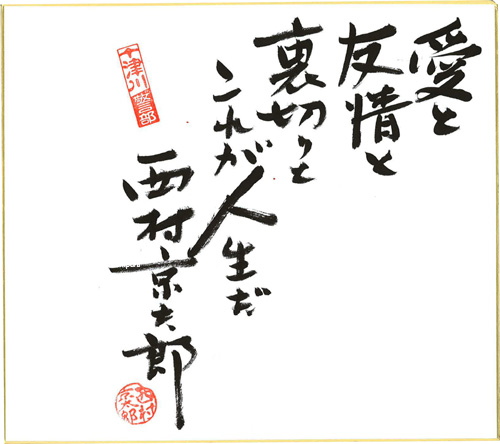 愛と
友情と
裏切りと
これが人生だ
十津川警部
西村京太郎
西村京太郎